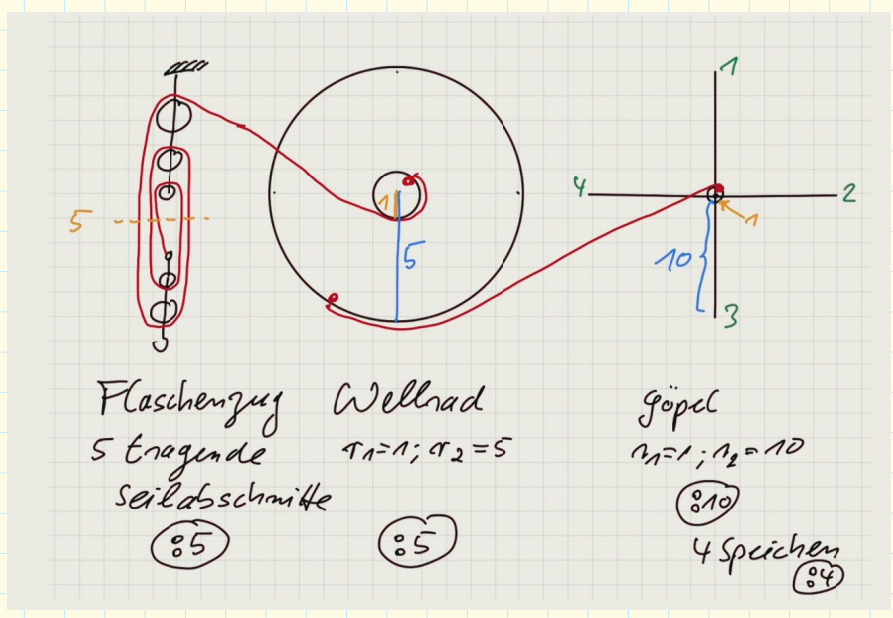 1
4
2
5
1
1
5
10
3
Flaschenzug
5 tragende
Seilabschnitte
:5
Wellrad
r1=1; r2=5
:5
Göpel
r1=1; r2=10
:10
4 Speichen
:4